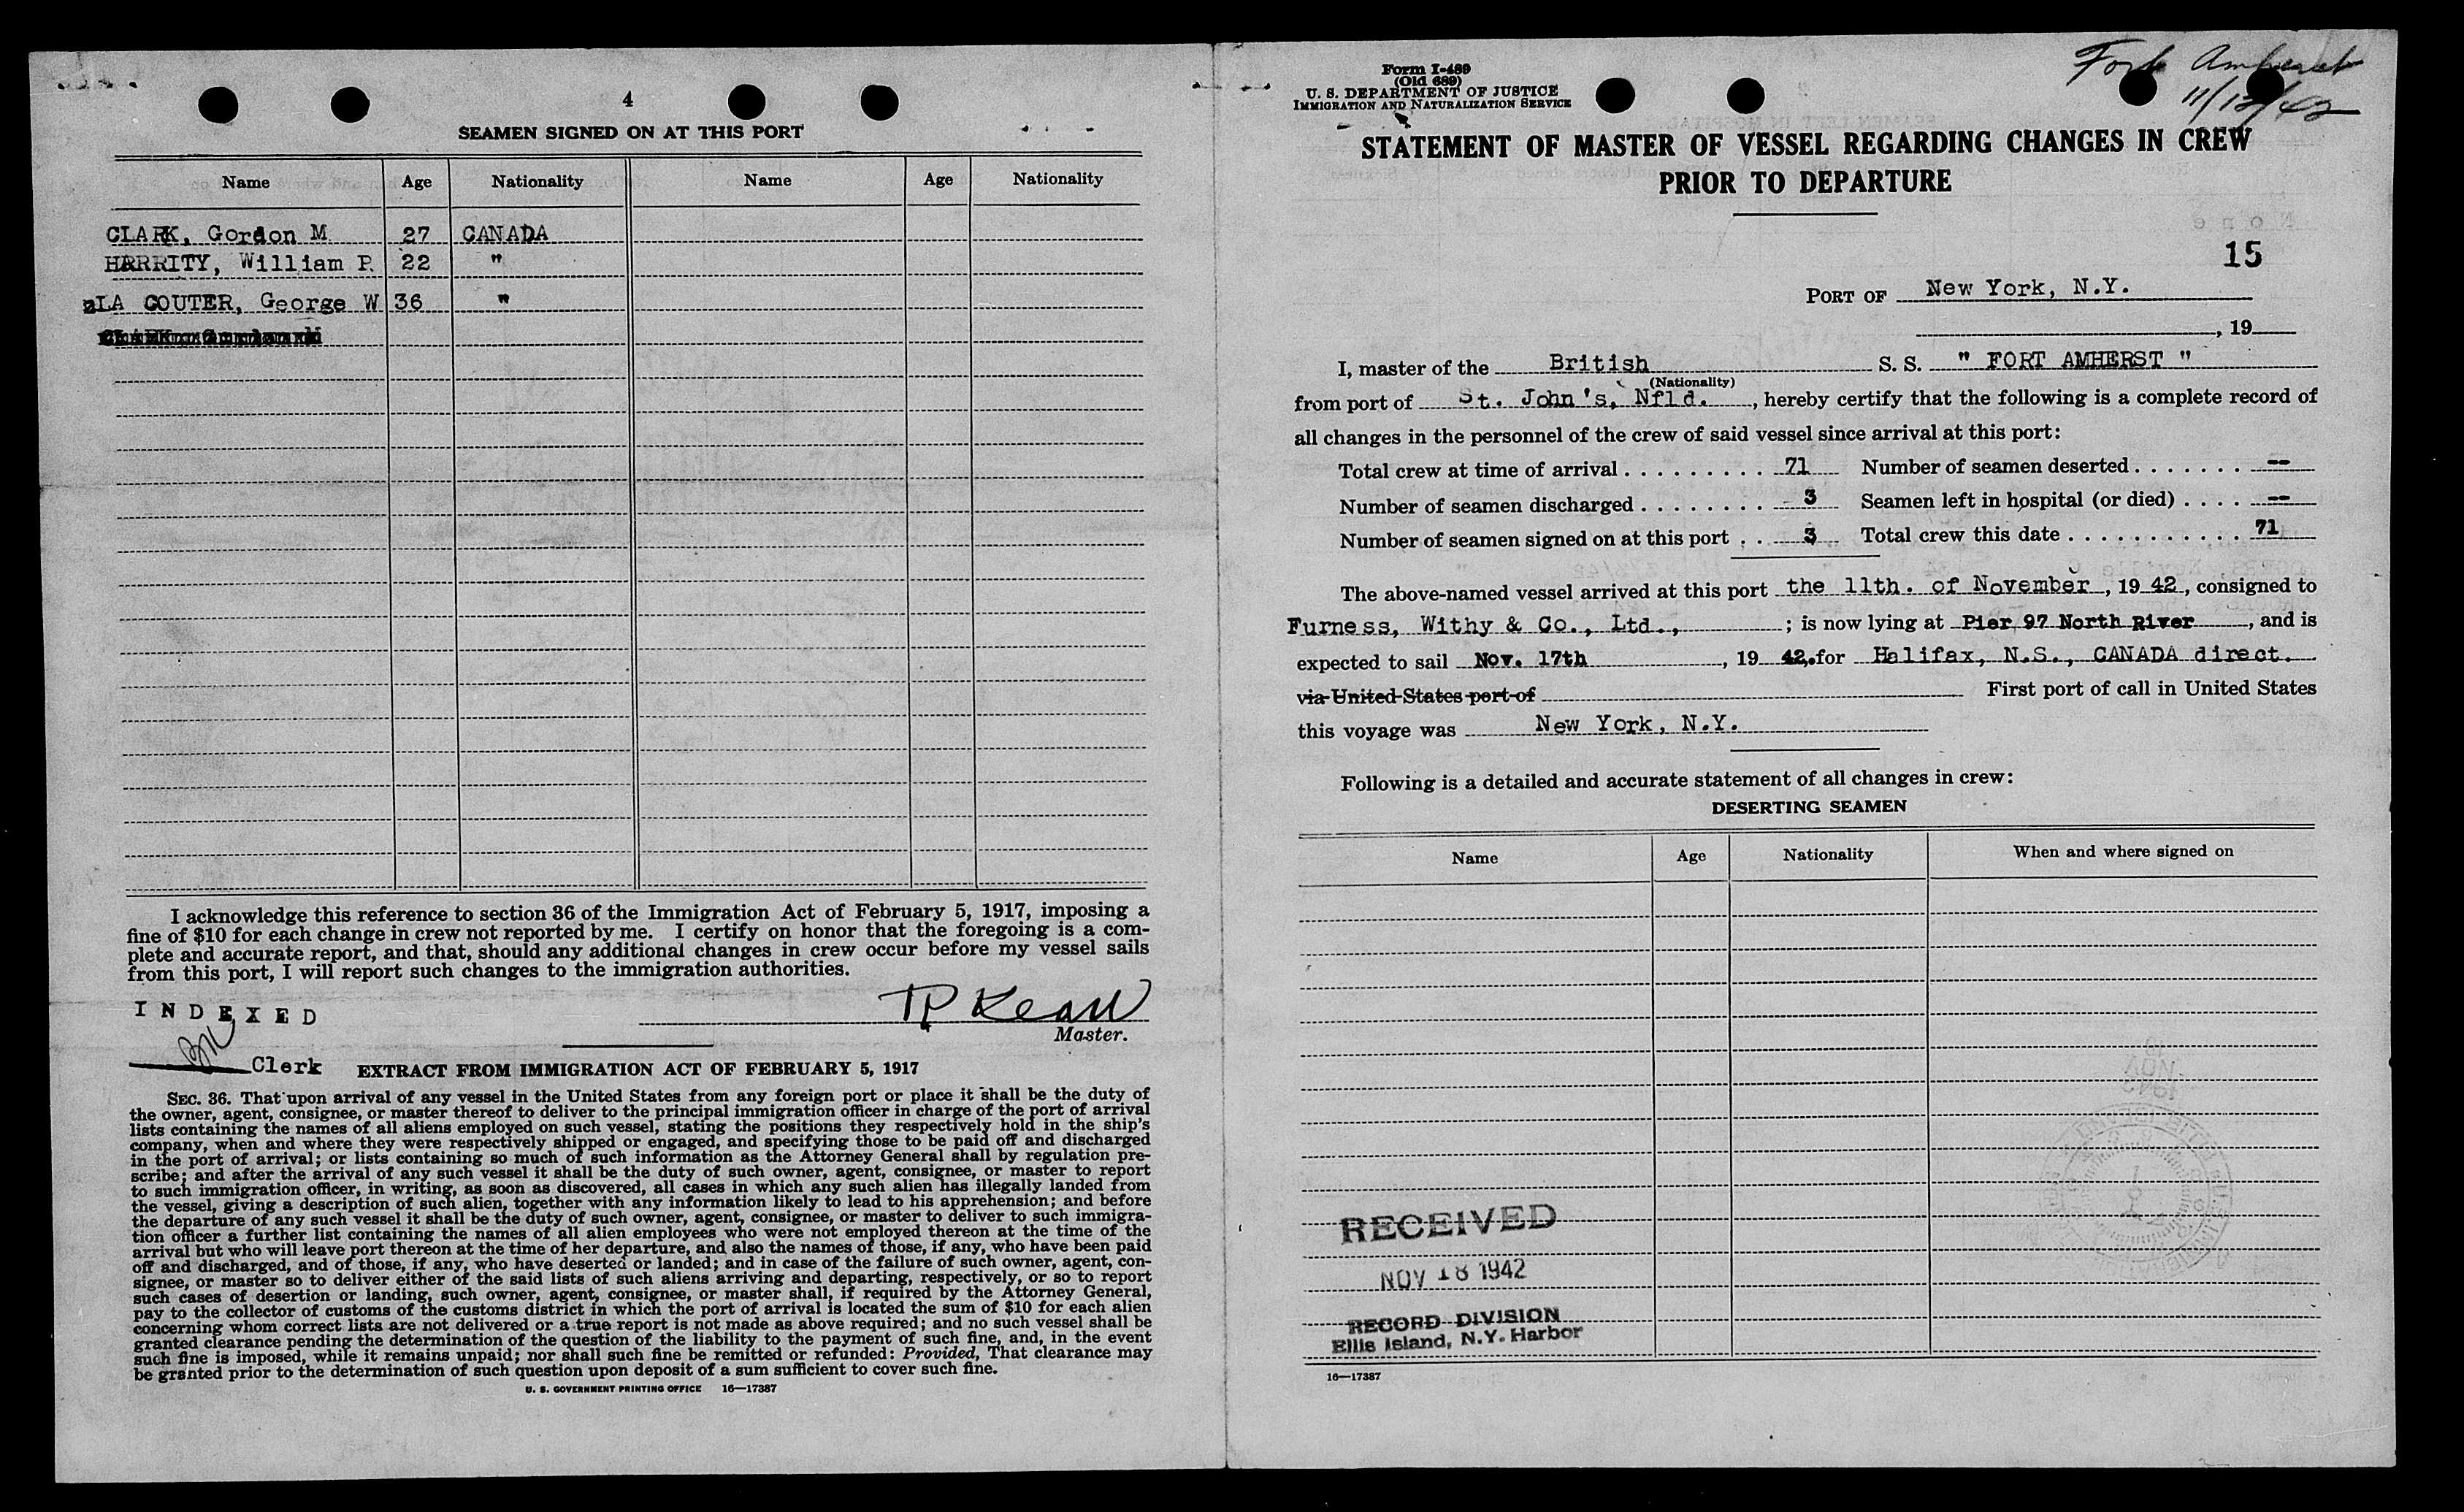 4
SEAMEN SIGNED ON AT THIS PORT
Name Age Nationality Name Age Nationality
CLARK, Gordon M 27 CANADA
HARRITY, William P. 22 "
LA COUTER, George W 36 "
I acknowledge this reference to section 36 of the Immigration Act of February 5, 1917, imposing a
fine of $10 for each change in crew not reported by me. I certify on honor that the foregoing is a com-
plete and accurate report, and that, should any additional changes in crew occur before my vessel sails
from this port, I will report such changes to the immigration authorities.
INDEXED
Master.
Clerk
EXTRACT FROM IMMIGRATION ACT OF FEBRUARY 5, 1917
SEC. 36. That upon arrival of any vessel in the United States from any foreign port or place it shall be the duty of
the owner, agent, consignee, or master thereof to deliver to the principal immigration officer in charge of the port of arrival
lists containing the names of all aliens employed on such vessel, stating the positions they respectively hold in the ship's
company, when and where they were respectively shipped or engaged, and specifying those to be paid off and discharged
in the port of arrival; or lists containing so much of such information as the Attorney General shall by regulation pre-
scribe; and after the arrival of any such vessel it shall be the duty of such owner, agent, consignee, or master to report
to such immigration officer, in writing, as soon as discovered, all cases in which any such alien has illegally landed from
the vessel, giving a description of such alien, together with any information likely to lead to his apprehension; and before
the departure of any such vessel it shall be the duty of such owner, agent, consignee, or master to deliver to such immigra-
tion officer a further list containing the names of all alien employees who were not employed thereon at the time of the
arrival but who will leave port thereon at the time of her departure, and also the names of those, if any, who have been paid
off and discharged, and of those, if any, who have deserted or landed; and in case of the failure of such owner, agent, con-
signee, or master so to deliver either of the said lists of such aliens arriving and departing, respectively, or so to report
such cases of desertion or landing, such owner, agent, consignee, or master shall, if required by the Attorney General,
pay to the collector of customs of the customs district in which the port of arrival is located the sum of $10 for each alien
concerning whom correct lists are not delivered or a true report is not made as above required; and no such vessel shall be
granted clearance pending the determination of the question of the liability to the payment of such fine, and, in the event
such fine is imposed, while it remains unpaid; nor shall such fine be remitted or refunded: Provided, That clearance may
be granted prior to the determination of such question upon deposit of a sum sufficient to cover such fine.
U. S. GOVERNMENT PRINTING OFFICE 16—17387
Fort Amherst
Form I-489
(Old 689)
U. S. DEPARTMENT OF JUSTICE
IMMIGRATION AND NATURALIZATION SERVICE
STATEMENT OF MASTER OF VESSEL REGARDING CHANGES IN CREW
PRIOR TO DEPARTURE
15
PORT OF New York, N.Y.
, 19
I, master of the British S. S. " FORT AMHERST "
(Nationality)
from port of St. John's, Nfld. , hereby certify that the following is a complete record of
all changes in the personnel of the crew of said vessel since arrival at this port:
Total crew at time of arrival . . . . . . . . . 71 Number of seamen deserted . . . . . . . --
Number of seamen discharged . . . . . . . . 3 Seamen left in hospital (or died) . . . . --
Number of seamen signed on at this port . . 3 Total crew this date . . . . . . . . . . . 71
The above-named vessel arrived at this port the 11th. of November , 19 42, consigned to
Furness, Withy & Co., Ltd., ; is now lying at Pier 97 North River , and is
expected to sail Nov. 17th , 19 42. for Halifax, N.S., CANADA direct.
via United States port of First port of call in United States
this voyage was New York, N.Y.
Following is a detailed and accurate statement of all changes in crew:
DESERTING SEAMEN
Name Age Nationality When and where signed on
RECEIVED
NOV 18 1942
RECORD DIVISION
Ellis Island, N.Y. Harbor
16—17387